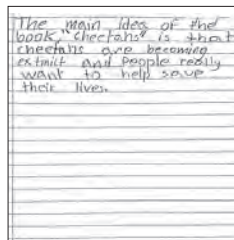 The main idea of the
book, "Cheetahs" is that
cheetahs are becoming
extinct and people really
want to help save
their lives.